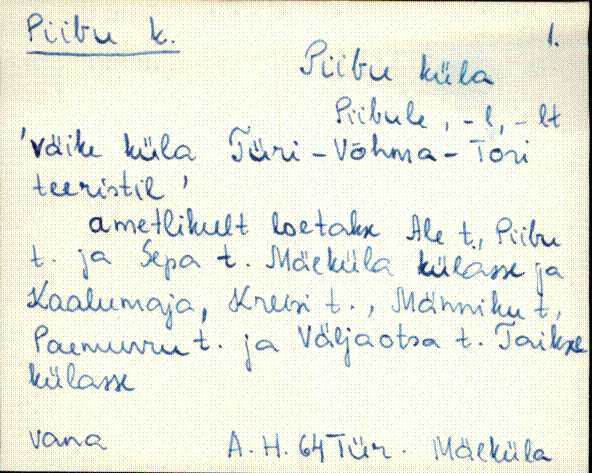 Piibu k.
1.
Piibu küla
Piibule, -l, -lt
'väike küla Türi-Võhma-Tori
teeristil'
ametlikult loetakse Ale t., Piibu
t. ja Sepa t. Mäeküla külasse ja
Kaalumaja, Kreisi t., Männiku t,
Paemurru t. ja Väljaotsa t. Taikse
külasse
vana
A. H. 64 Tür. Mäeküla